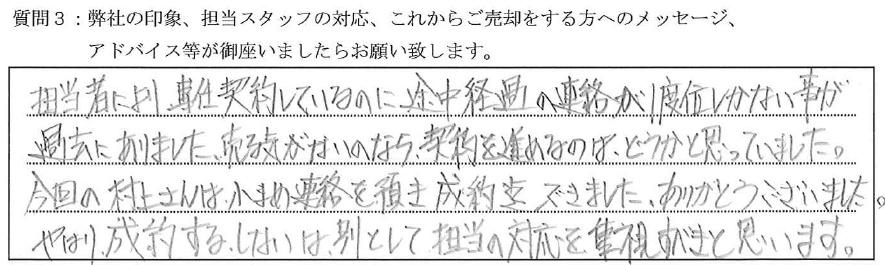 質問３：弊社の印象、担当スタッフの対応、これからご売却をする方へのメッセージ、
アドバイス等が御座いましたらお願い致します。
担当者により専任契約しているのに途中経過の連絡が1度位しかない事が
過去にありました、売る気がないのなら、契約を進めるのは、どうかと思っていました。
今回の村上さんは、小まめ連絡を頂き成約まで できました、ありがとうございました。
やはり、成約する、しないは、別として担当の対応を重視すべきと思います。